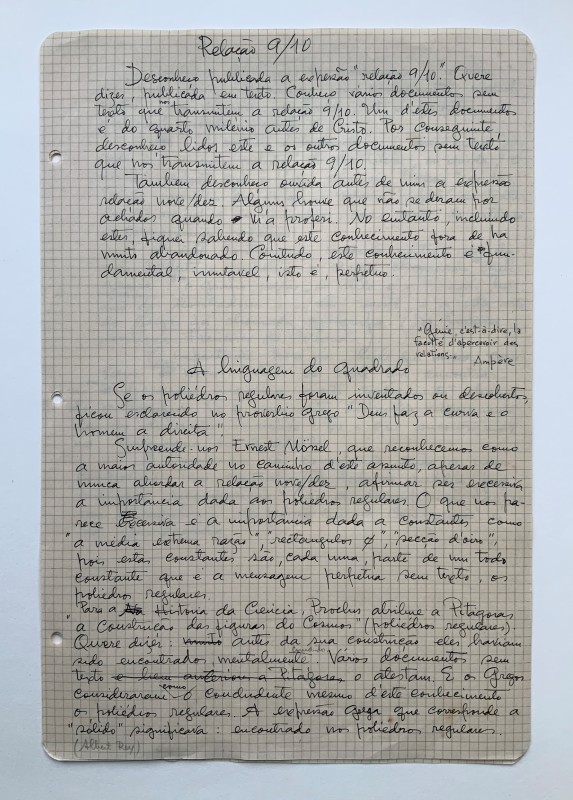 Relação 9/10
Desconheço publicada a expressão "relação 9/10". Quere
dizer, publicada em texto. Conheço vários documentos sem
texto que nos transmitem a relação 9/10. Um d'êstes documentos
é do quarto milénio antes de Cristo. Por conseguinte,
desconheço lidos este e os outros documentos sem texto
que nos transmitem a relação 9/10.
Também desconheço ouvida antes de mim a expressão
relação nove/dez. Alguns houve que não se deram por
achados quando lh'a proferi. No entanto, incluindo
estes, fiquei sabendo que este conhecimento fora de há
muito abandonado. Contudo, este conhecimento é fun-
damental, imutável, isto é, perpétuo.
"Génie, c'est-à-dire, la
faculté d'apercevoir des
relations."
Ampère
A linguagem do quadrado
Se os poliédros regulares foram inventados ou descobertos,
ficou esclarecido no provérbio grego "Deus faz a curva e o
homem a direita".
Surpreende-nos Ernest Mössel, que reconhecemos como
a maior autoridade no caminho d'êste assunto, apesar de
nunca abordar a relação nove/dez, afirmar ser excessiva
a importância dada aos poliedros regulares. O que nos pa-
rece excessiva é a importância dada a constantes como
"a média extrema razão", "rectangulos φ", "secção d'ouro",
pois estas constantes são, cada uma, parte de um todo
constante que é a mensagem perpétua sem texto, os
poliedros regulares.
"Para a História da Ciência, Proclus atribue a Pitágoras
a Construção das figuras do Cosmos" (poliedros regulares).
Quere dizer: antes da sua construção eles haviam
sido encontrados mentalmente. Vários documentos sem
texto e bem anteriores a Pitágoras o atestam. E os Gregos
consideraram como o concludente mesmo d'êste conhecimento
os poliédros regulares. A expressão grega que corresponde a
"sólido" significava: encontrado nos poliedros regulares.
(Albert Rey)